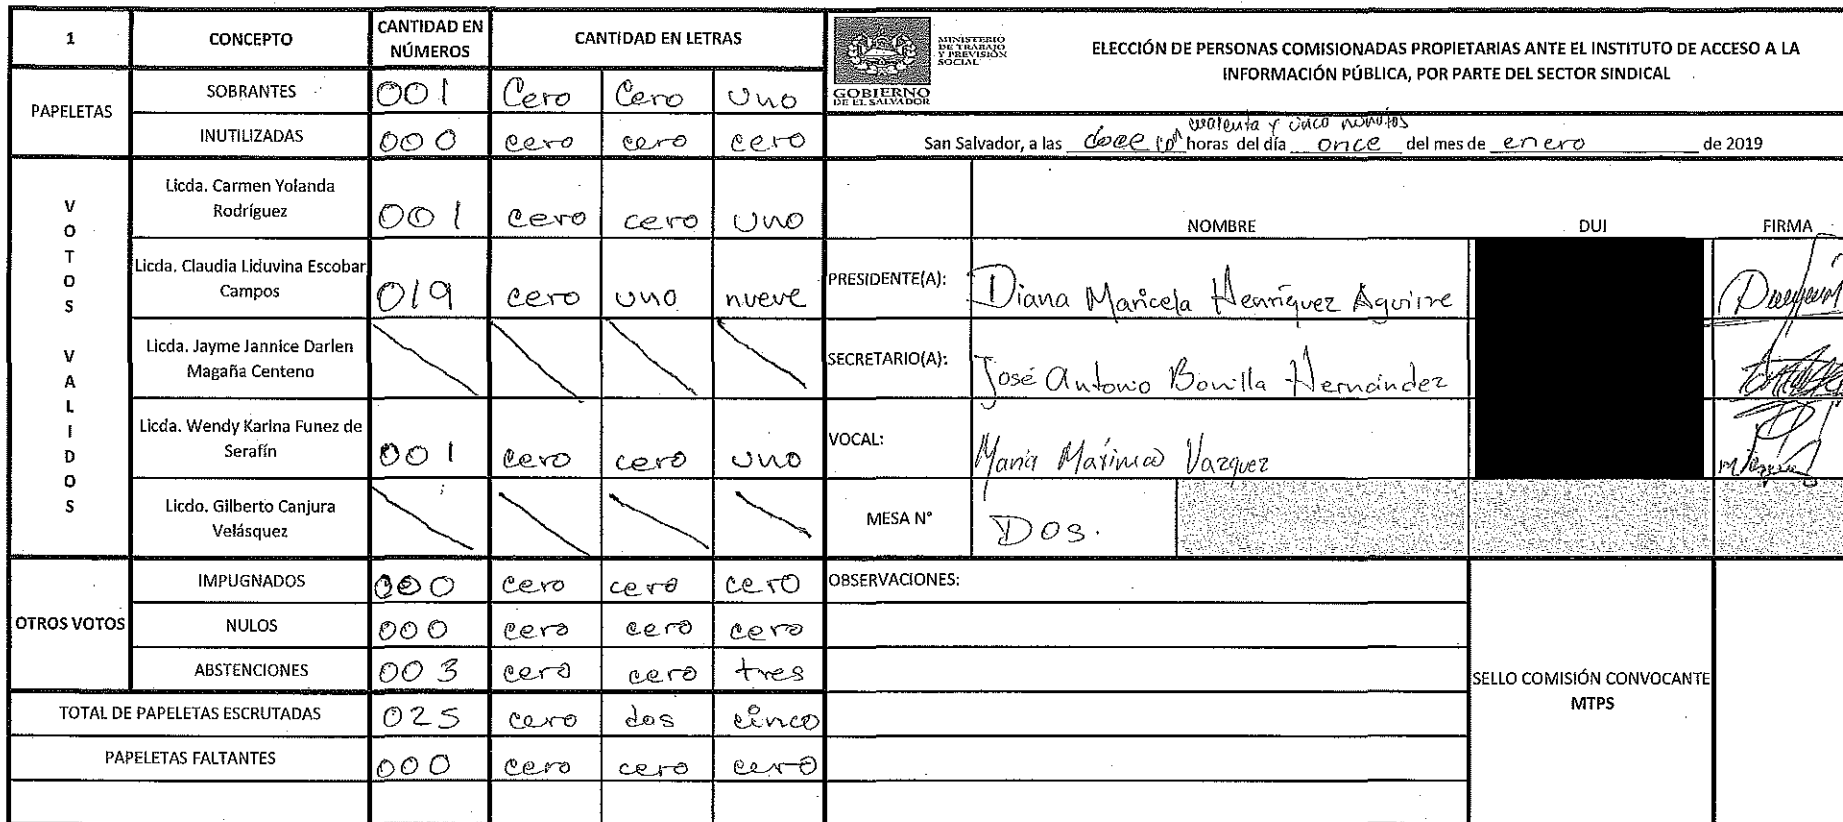 1 CONCEPTO CANTIDAD EN NÚMEROS CANTIDAD EN LETRAS
PAPELETAS
SOBRANTES 001 Cero Cero uno
INUTILIZADAS 000 cero cero cero
VOTOS VALIDOS
Licda. Carmen Yolanda Rodríguez 001 cero cero uno
Licda. Claudia Liduvina Escobar Campos 019 cero uno nueve
Licda. Jayme Jannice Darlen Magaña Centeno
Licda. Wendy Karina Funez de Serafín 001 cero cero uno
Licdo. Gilberto Canjura Velásquez
OTROS VOTOS
IMPUGNADOS 000 cero cero cero
NULOS 000 cero cero cero
ABSTENCIONES 003 cero cero tres
TOTAL DE PAPELETAS ESCRUTADAS 025 cero dos cinco
PAPELETAS FALTANTES 000 cero cero cero
MINISTERIO
DE TRABAJO
Y PREVISIÓN
SOCIAL
GOBIERNO
DE EL SALVADOR
ELECCIÓN DE PERSONAS COMISIONADAS PROPIETARIAS ANTE EL INSTITUTO DE ACCESO A LA
INFORMACIÓN PÚBLICA, POR PARTE DEL SECTOR SINDICAL
cuarenta y cinco minutos
San Salvador, a las doce con horas del día once del mes de enero de 2019
NOMBRE DUI FIRMA
PRESIDENTE(A): Diana Maricela Henríquez Aguirre
SECRETARIO(A): José Antonio Bonilla Hernández
VOCAL: María Vazquez
MESA N° Dos.
OBSERVACIONES:
SELLO COMISIÓN CONVOCANTE
MTPS